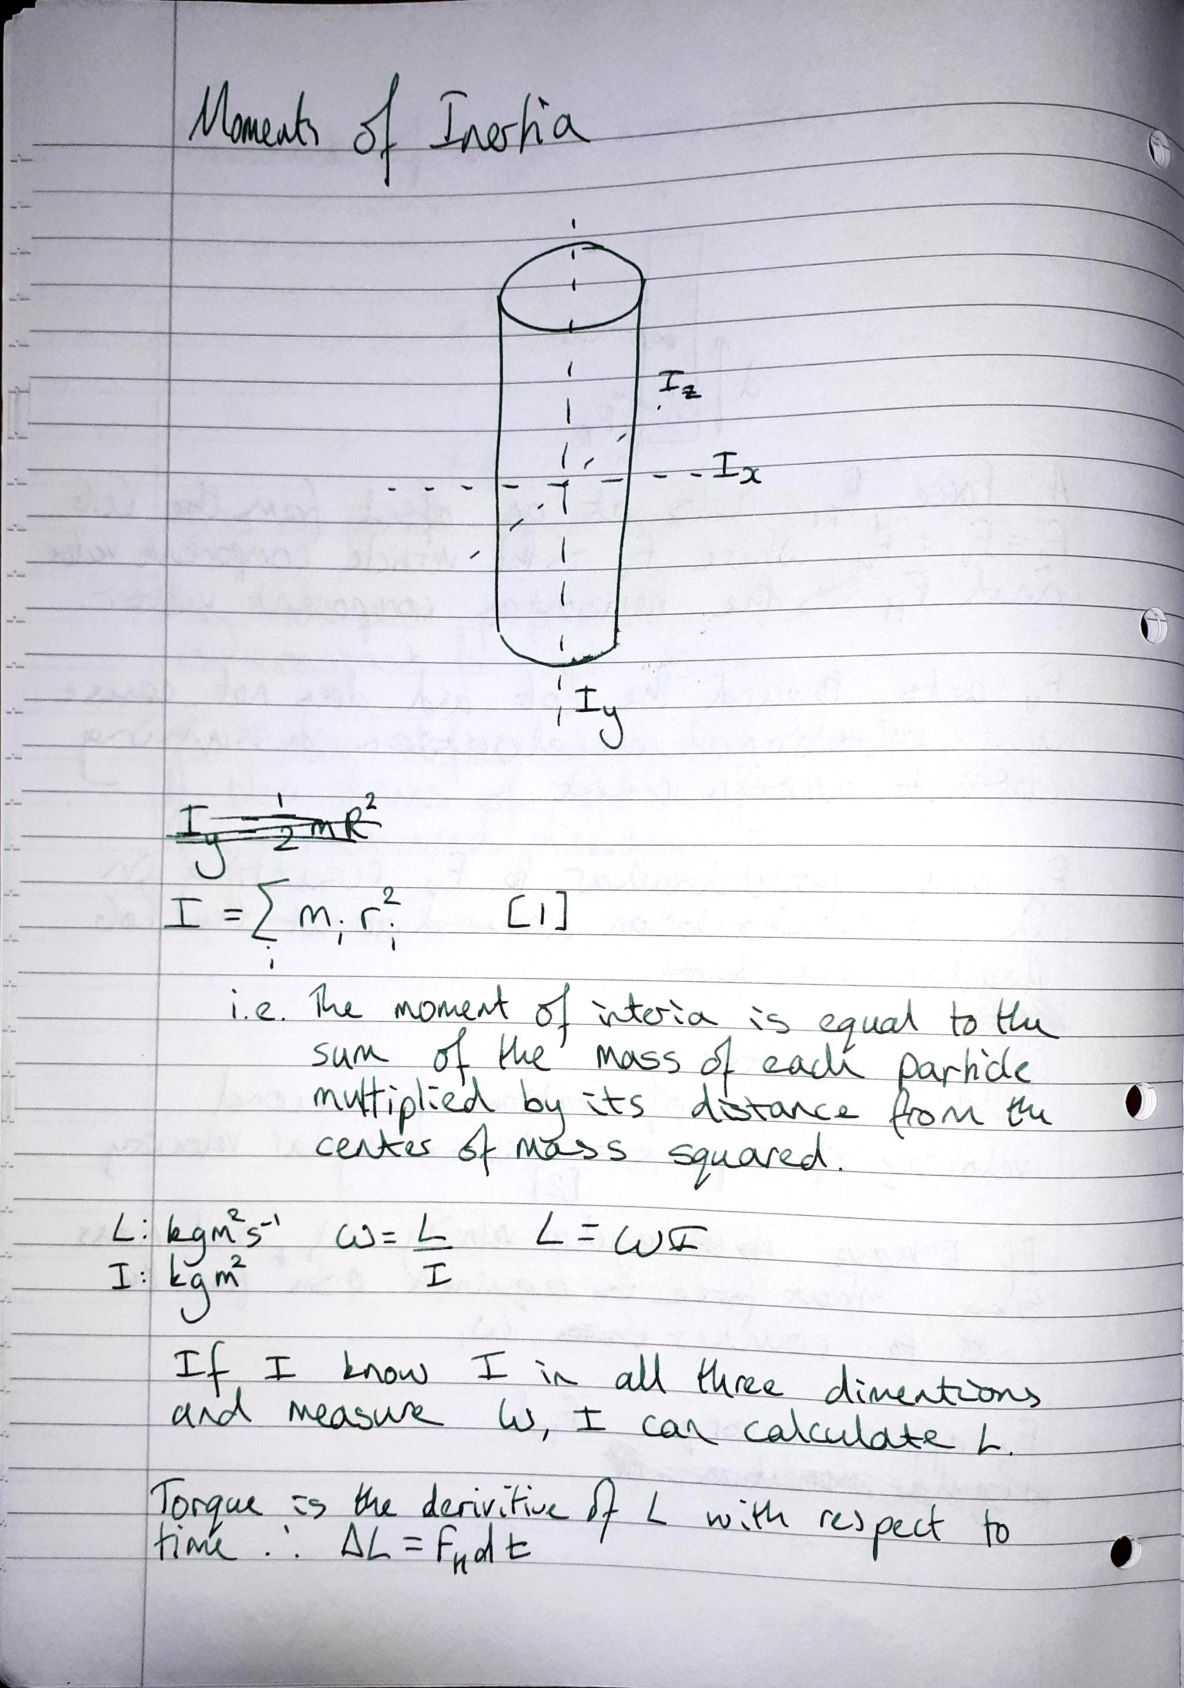 Moments of Inertia
I_z
I_x
I_y
I_y = 1/2 mR²
I = ∑_i m_i r_i² [1]
i.e. The moment of interia is equal to the
sum of the mass of each particle
multiplied by its distance from the
center of mass squared.
L: kgm²s⁻¹ ω = L/I L = ωI
I: kgm²
If I know I in all three dimentions
and measure ω, I can calculate L.
Torque is the derivitive of L with respect to
time ∴ ΔL = F_H d t